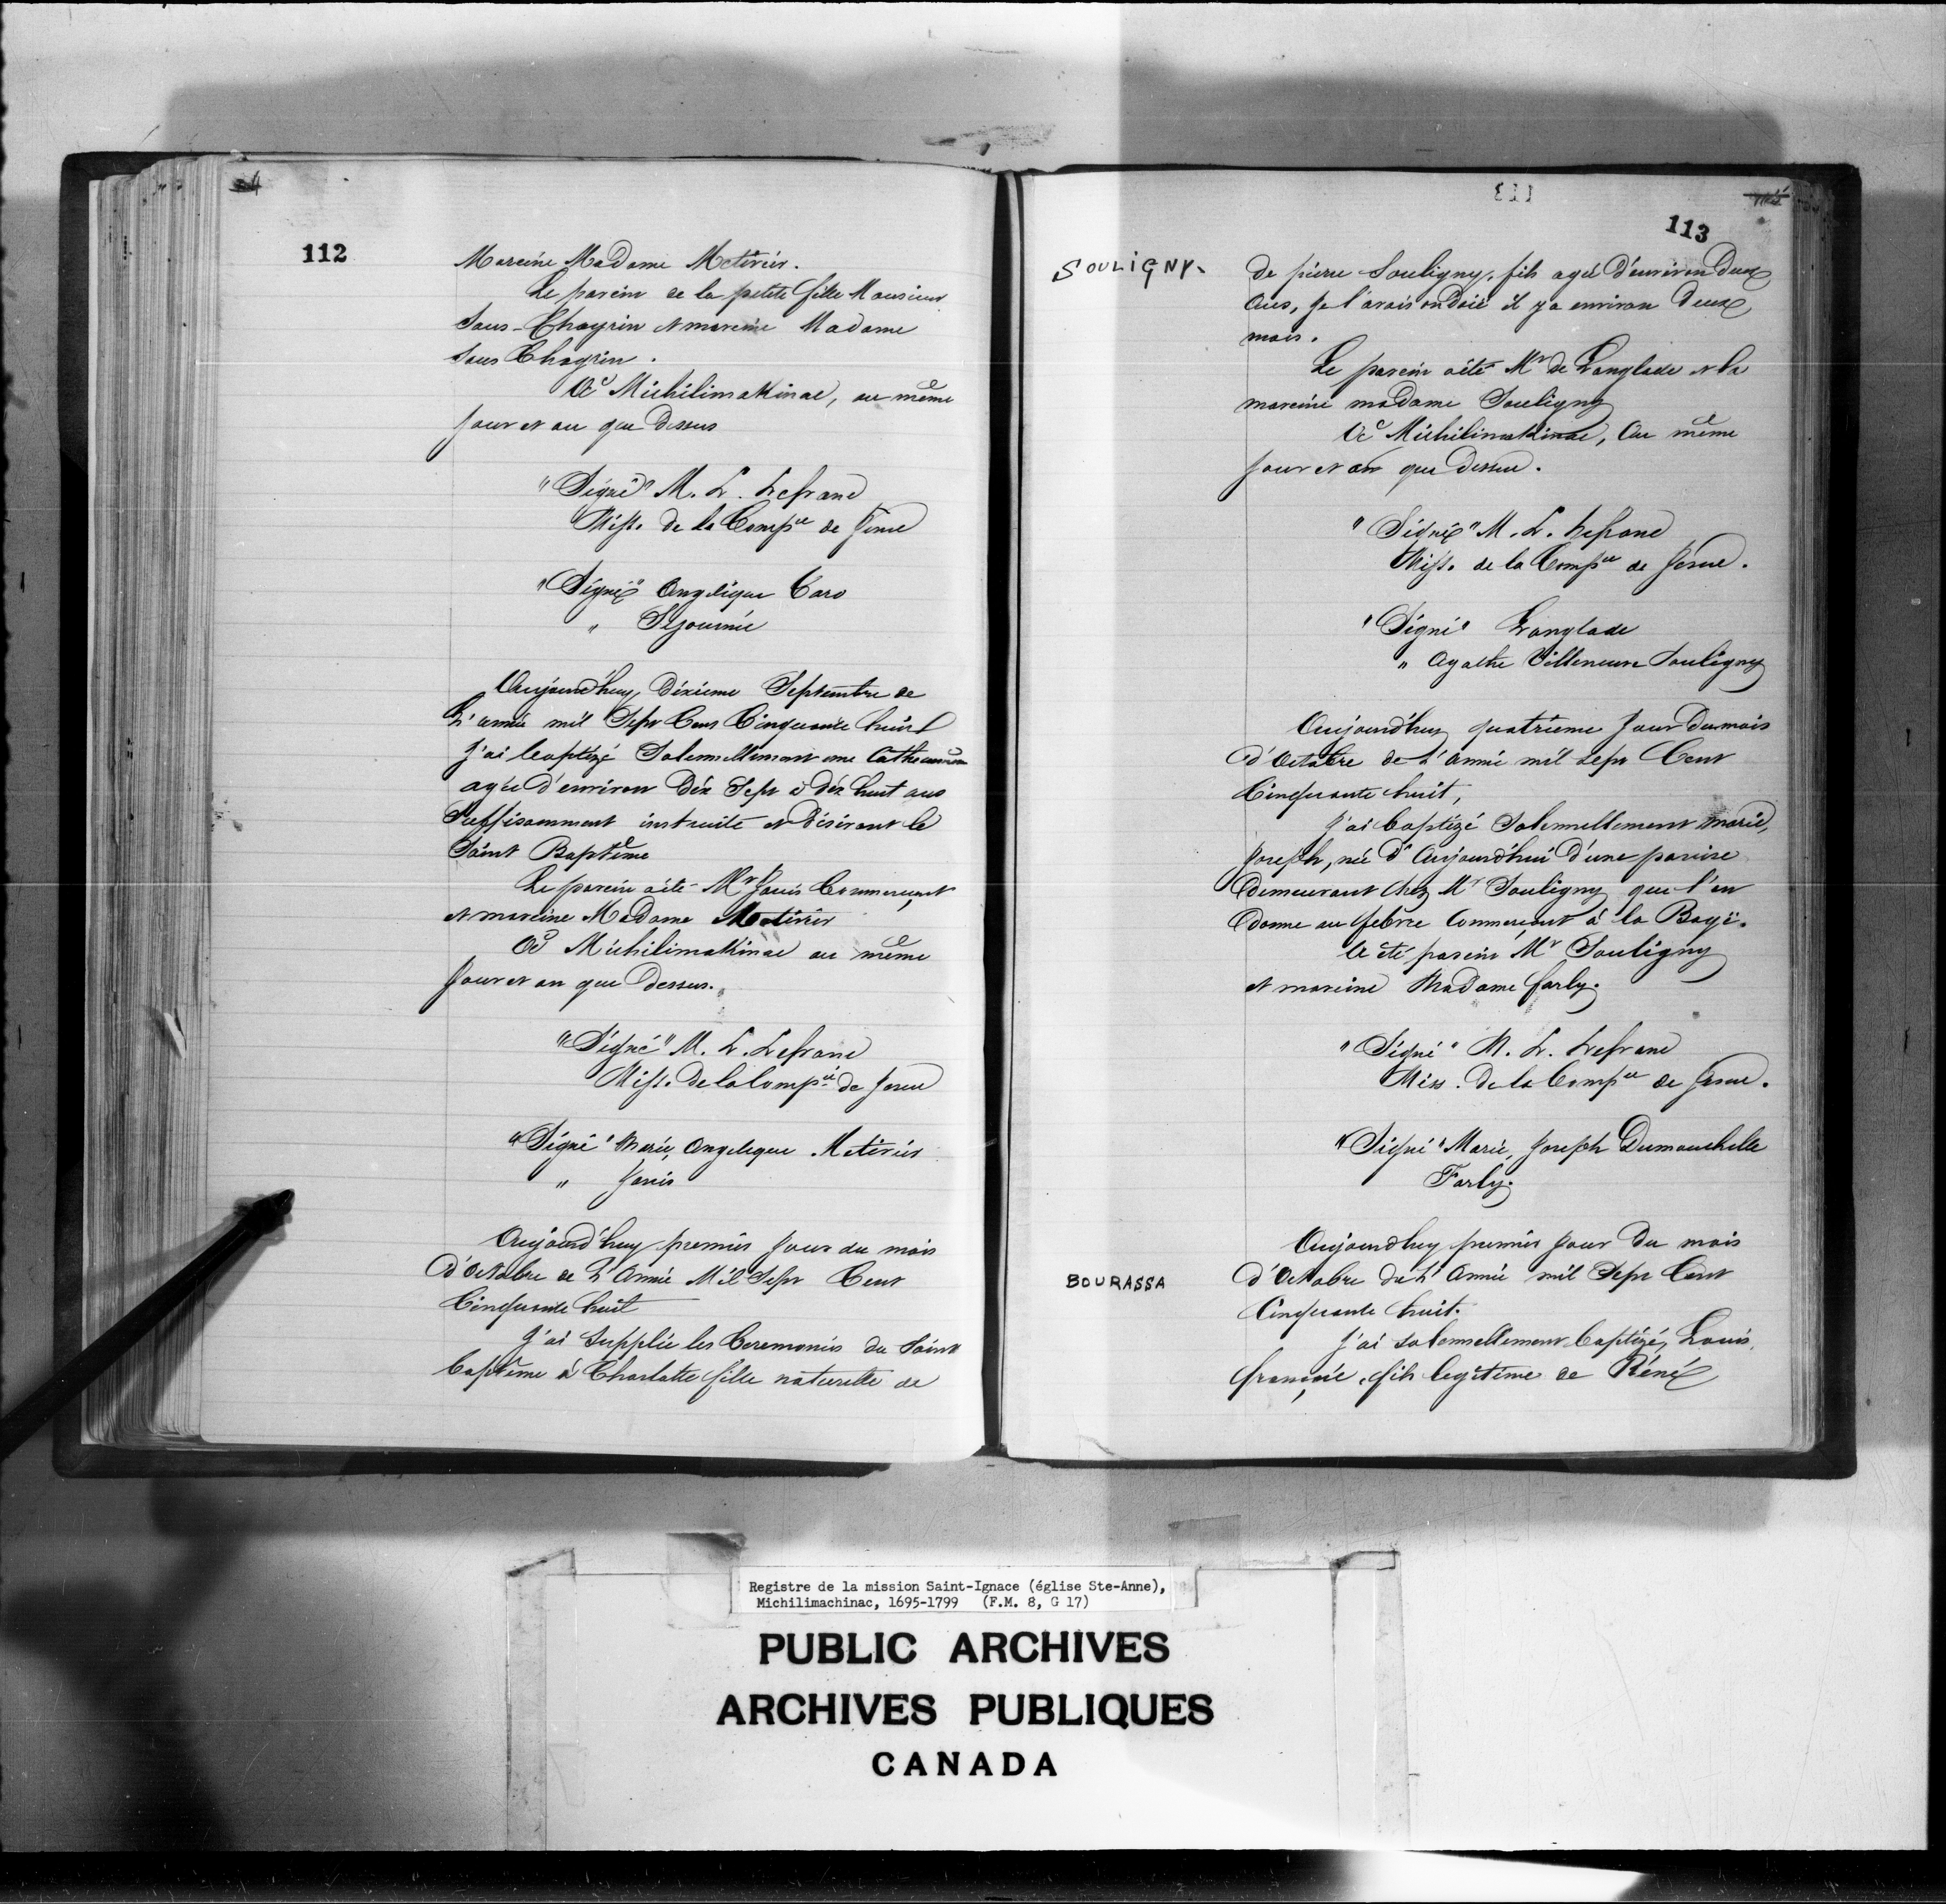 112
Mareine Madame Metivier.
Le parein de la petite fille Monsieur
Sans-Chagrin et mareine Madame
Sans Chagrin.
A Michilimakinac, au même
jour et an que dessus
"Signé" M. L. Lefranc
Miss. de la Compie de Jesus
"Signé" Angelique Caro
" Sejournée
Aujourd'huy, dixieme Septembre de
L'année mil Sept Cens Cinquante huit
j'ai baptizé Solemnellement une
agée d'environ dix Sept à dix huit ans
Suffisamment instruite et désirant le
Saint Baptême
Le parein a été Mr Janis Commerçant
et mareine Madame Metivier
A Michilimakinac au même
jour et an que dessus.
"Signé" M. L. Lefranc
Miss. de la Compie de Jesus
"Signé" Marie, Angelique Metivier
" Janis
Aujourd'huy premier jour du mois
d'Octobre de L'Année Mil Sept Cent
Cinquante huit
J'ai Supplée les Ceremonies du Saint
baptême à Charlotte fille naturelle de
113
SOULIGNY.
de pierre Souligny, fils agé d'environ deux
ans, je l'avais ondoié il y a environ deux
mois.
Le parein a été Mr de Langlade et la
mareine madame Souligny
A Michilimakinac, Au même
jour et an que dessus.
"Signé" M. L. Lefranc
Miss. de la Compie de Jesus.
"Signé" Langlade
" Agathe Villeneuve Souligny
Aujourd'huy quatrieme jour du mois
d'Octobre de L'Année mil sept Cent
Cinquante huit,
j'ai baptizé Solennellement marie,
Joseph, née d'Aujourd'hui d'une panise
demeurant chez Mr Souligny que l'on
donne au febvre Commerçant à la Baye.
A été parein Mr Souligny
et mareine Madame farly.
"Signé" M. L. Lefranc
Miss. de la Compie de Jesus.
"Signé" Marie, Joseph Dumouchelle
Farly.
Aujourdhuy premier jour du mois
BOURASSA
d'Octobre de L'Année mil Sept Cent
Cinquante huit.
j'ai solennellement baptizé, Louis,
fils legitime de Réné
Registre de la mission Saint-Ignace (église Ste-Anne),
Michilimachinac, 1695-1799 (F.M. 8, G 17)
PUBLIC ARCHIVES
ARCHIVES PUBLIQUES
CANADA